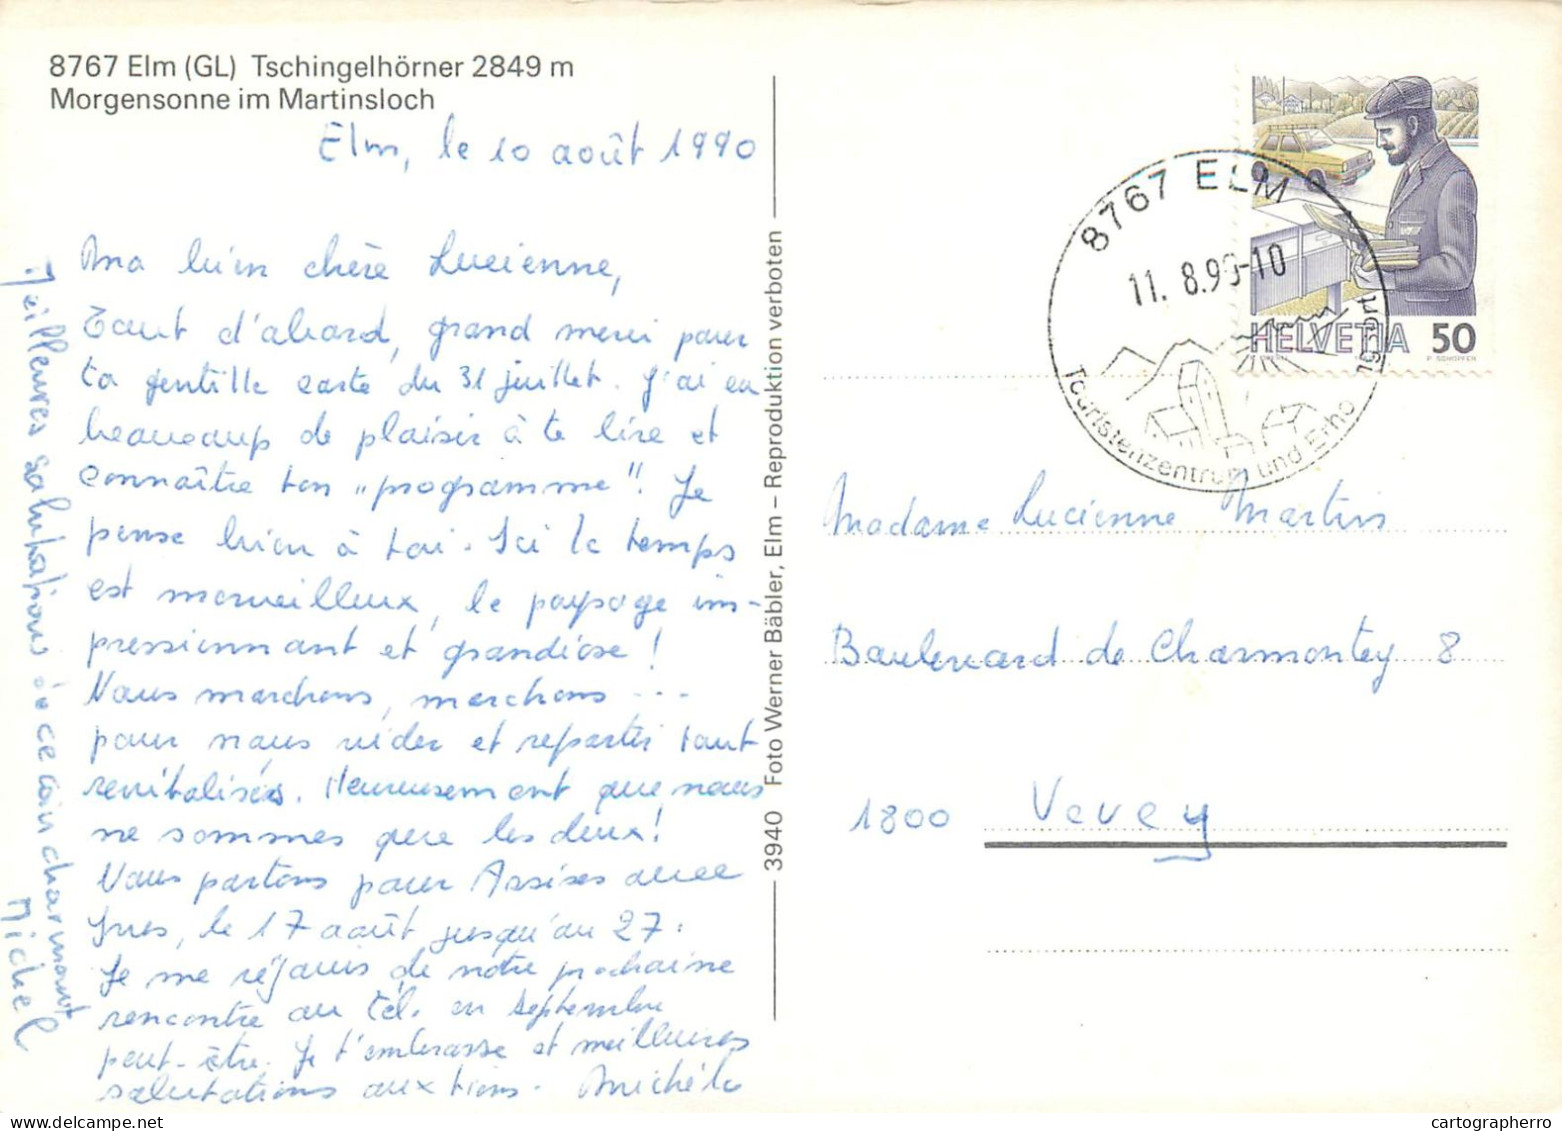 8767 Elm (GL) Tschingelhörner 2849 m
Morgensonne im Martinsloch
Elm, le 10 août 1990
Ma bien chère Lucienne,
Tout d'abord, grand merci pour
ta gentille carte du 31 juillet. J'ai eu
beaucoup de plaisir à te lire et
connaître ton „programme". Je
pense bien à toi. Ici le temps
est merveilleux, le paysage im-
pressionnant et grandiose!
Nous marchons, marchons ...
pour nous vider et repartir tout
revitalisés. Heureusement que nous
ne sommes que les deux!
Nous partons pour Assises avec
Yves, le 17 août jusqu'au 27.
Je me réjouis de notre prochaine
rencontre au tél. en septembre
peut-être. Je t'embrasse et meilleures
salutations aux tiens. Michèle
Meilleures salutations de ce coin charmant
Michel
3940 Foto Werner Bäbler, Elm – Reproduktion verboten
8767 ELM
11. 8.90-10
Touristenzentrum und Erho lgsort
HELVETIA 50
P. SCHOPFER
Madame Lucienne Martin
Boulevard de Charmontey 8
1800 Vevey
cartographerro